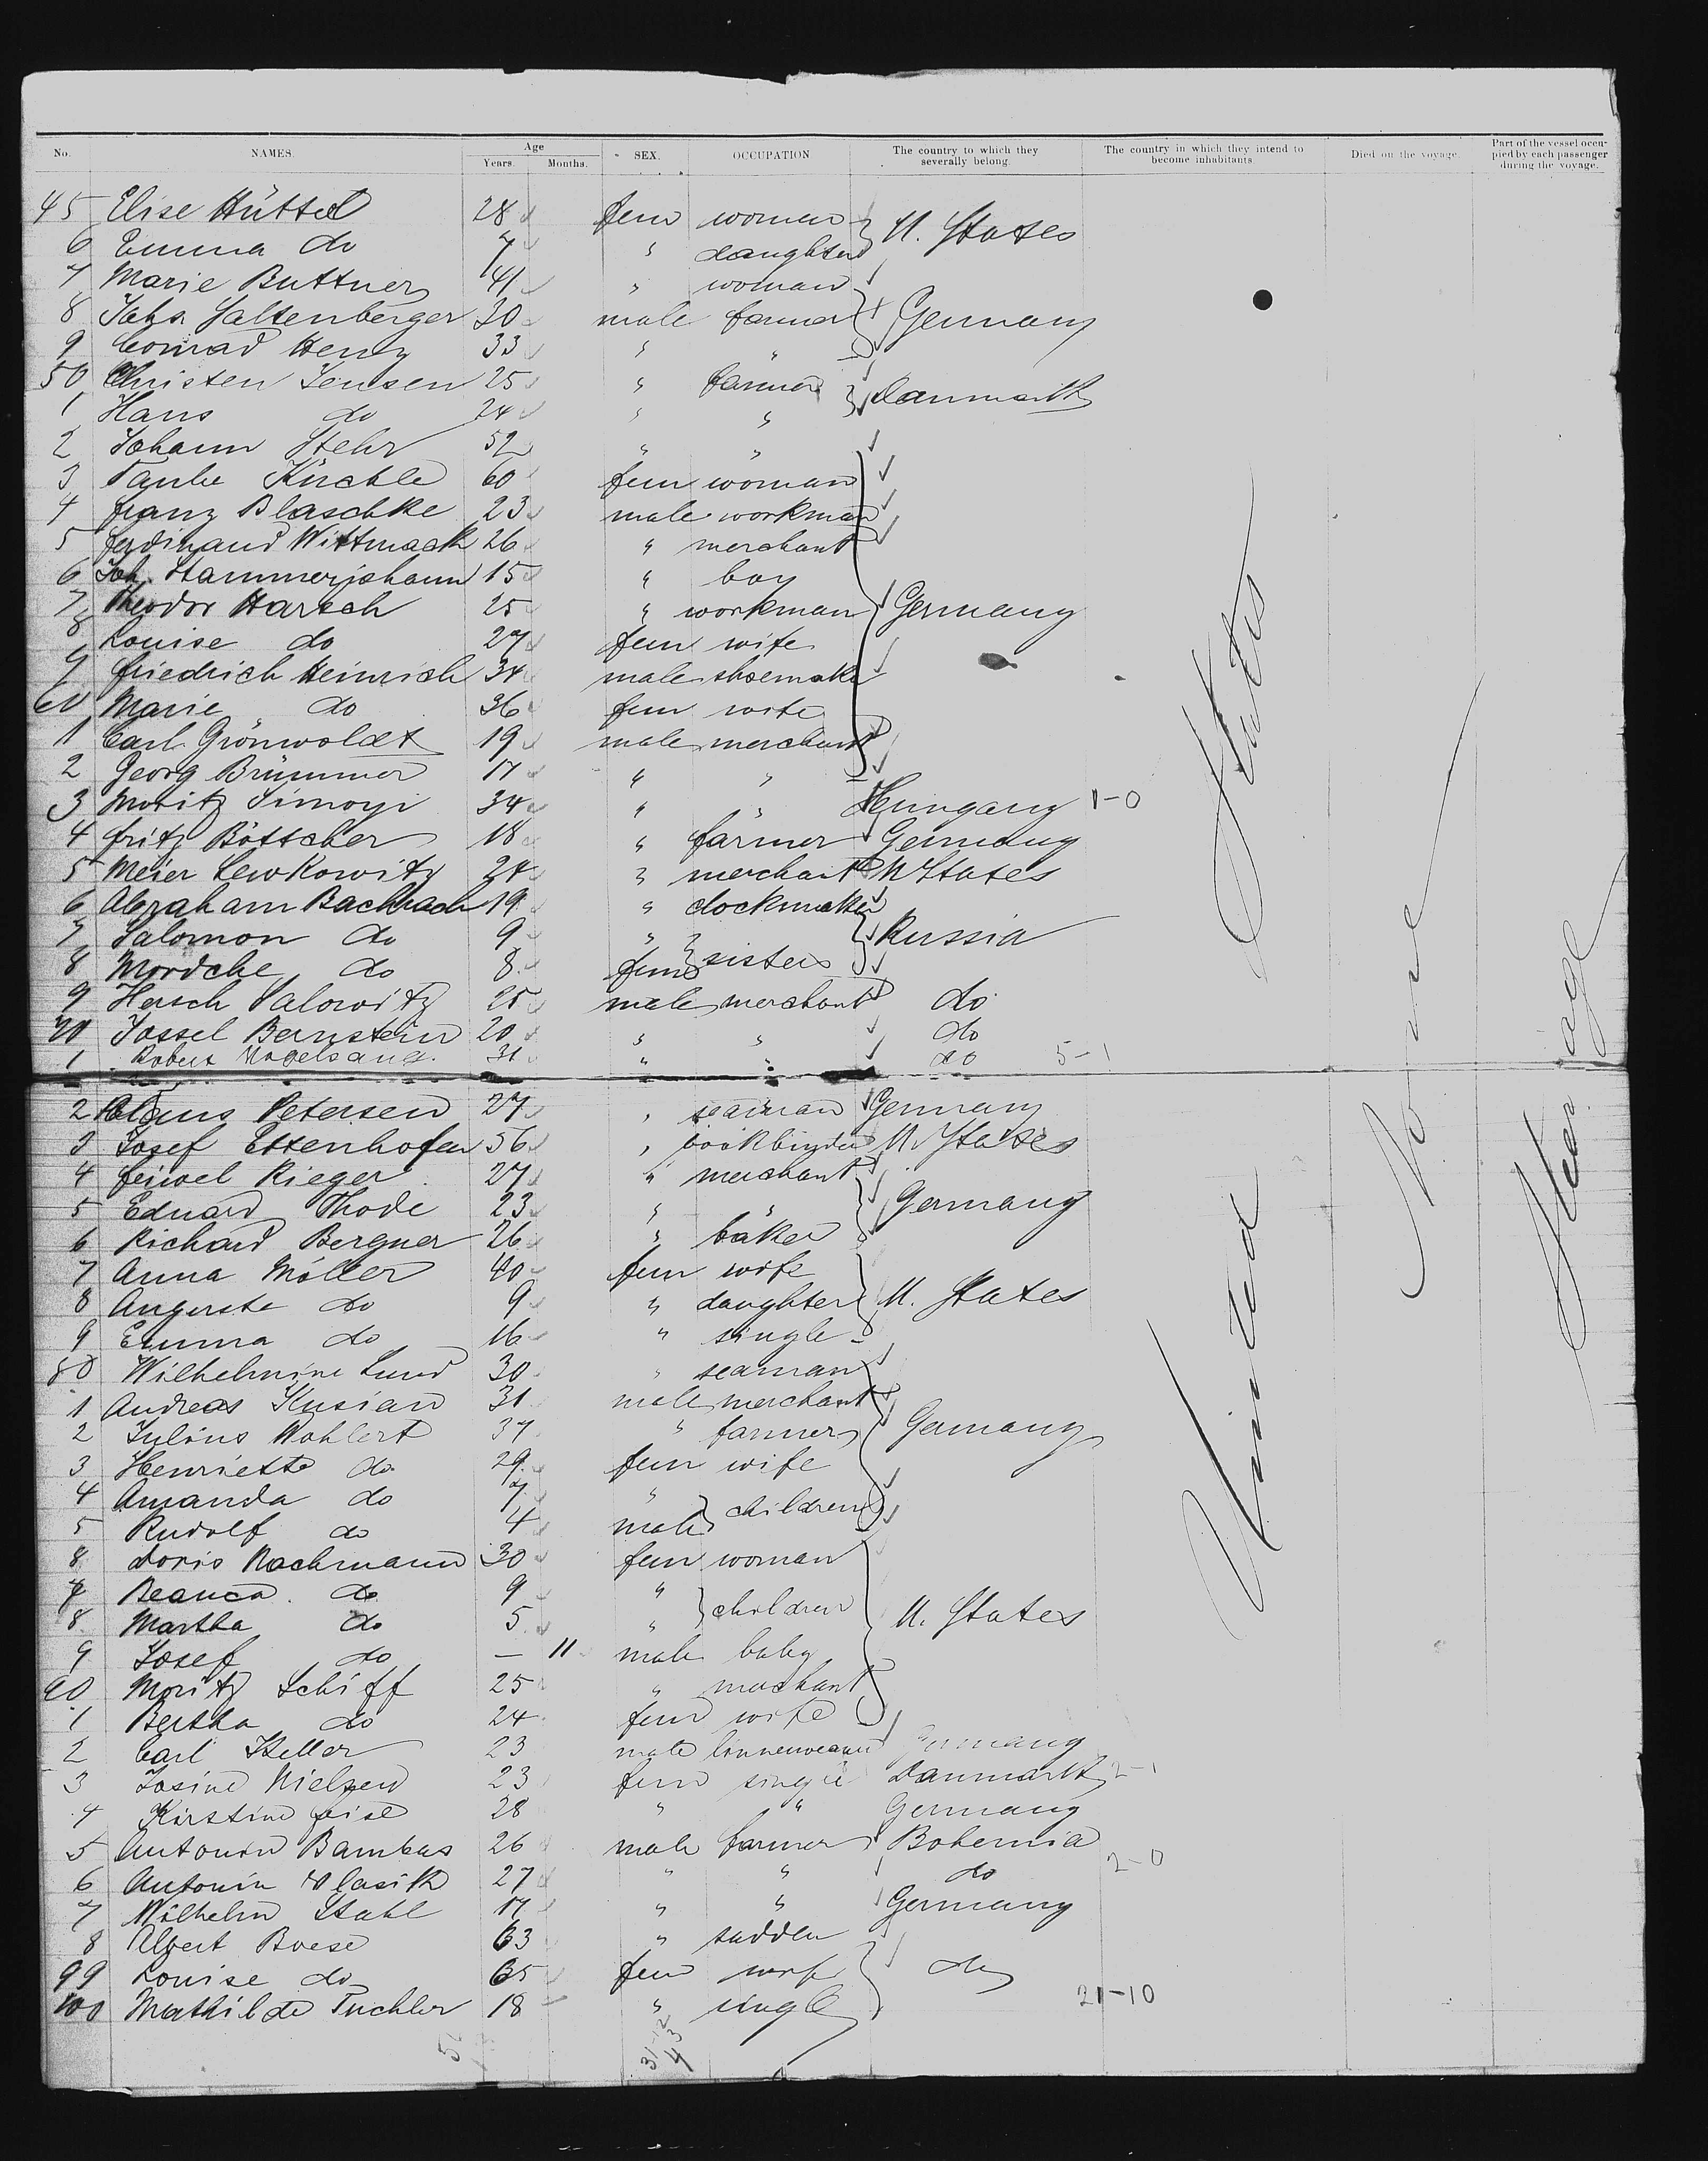 No. NAMES. Age Years. Months. SEX. OCCUPATION The country to which they severally belong. The country in which they intend to become inhabitants Died on the voyage. Part of the vessel occupied by each passenger during the voyage.
45 Elise Hüttel 28 fem woman U. States
6 Emma do 7 " daughter
7 Marie Buttner 41 " woman
8 Johs. Saltenberger 30 male farmer Germany
9 Conrad Henz 33 " "
50 Christen Jensen 25 " farmer Danmark
1 Hans do 24 " "
2 Johann Stehr 52 " "
3 Taube Kirchle 60 fem woman
4 franz Blaschke 23 male workman
5 ferdinand Wittmack 26 " merchant
6 Joh. Hammerjohann 15 " boy
7 Theodor Harsch 25 " workman Germany
8 Louise do 27 fem wife
9 friedrich Heinrich 34 male shoemaker
60 Marie do 36 fem wife
1 Carl Grönwoldt 19 male merchant
2 Georg Brümmer 17 " "
3 Moritz Simoyi 34 " " Hungary 1-0
4 fritz Böttcher 18 " farmer Germany
5 Meier Lewkowitz 24 " merchant U States
6 Abraham Bachrach 19 " clockmaker
7 Salomon do 9 " Russia
8 Mordche do 8 fem sister
9 Hersch Salowitz 25 male merchant do
70 Jossel Bernstein 20 " " do
1 Robert Vogelsang. 31 " " do 5-1
2 Claus Petersen 27 " seaman Germany
3 Josef Ettenhofer 56 " bookbinder U. States
4 feiwel Rieger 27 " merchant
5 Eduard Thode 23 " " Germany
6 Richard Bergner 26 " bäker
7 Anna Möller 40 fem wife
8 Auguste do 9 " daughter U. States
9 Emma do 16 " single
80 Wilhelmine Lund 30 " seaman
1 Andreas Kusian 31 male merchant
2 Julius Wohlert 37 " farmer Germany
3 Henriette do 29 fem wife
4 Amanda do 7 " children
5 Rudolf do 4 male
8 doris Nachmann 30 fem woman
7 Beanca do 9 " children
8 Martha do 5 " U. States
9 Josef do — 11 male baby
90 Moritz Schiff 25 " merchant
1 Bertha do 24 fem wife
2 Carl Heller 23 male linnenweaver Germany
3 Josine Nielsen 23 fem single Danmark 2-1
4 Kirstine feise 28 " " Germany
5 Antonin Bambas 26 male farmer Bohemia
6 Antonin Vlasik 27 " " do 2-0
7 Wilhelm Stahl 17 " " Germany
8 Albert Boese 63 " saddler
99 Louise do 65 fem wife do
100 Mathilde Tuchler 18 " single 21-10
31-12
43
United States
None
Steerage